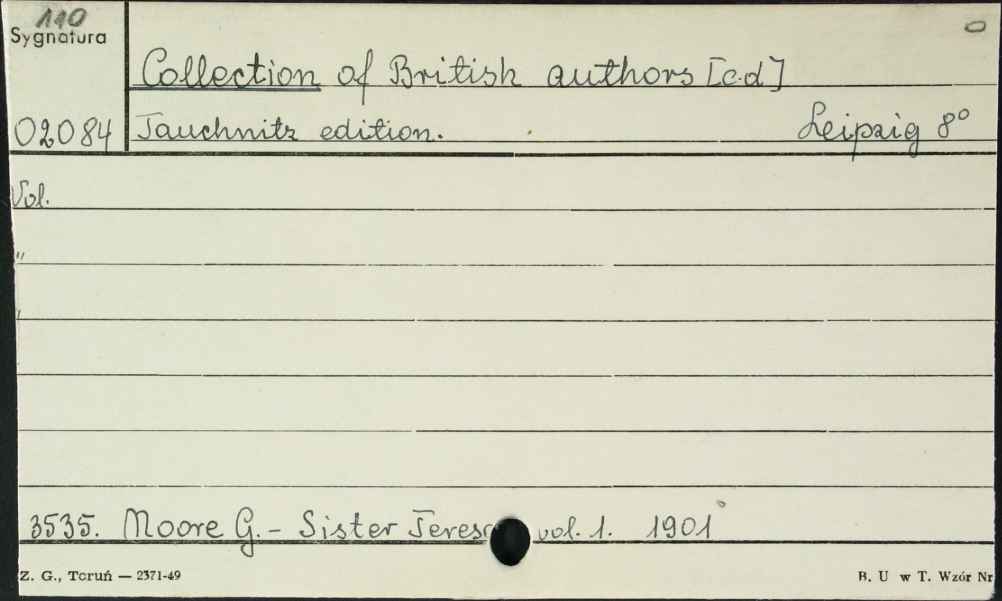 110
Sygnatura
Collection of British authors [c.d]
02084 Tauchnitz edition. Leipzig 8°
Vol.
"
"
3535. Moore G. - Sister Teresa vol. 1. 1901
Z. G., Toruń — 2371-49 B. U w T. Wzór Nr